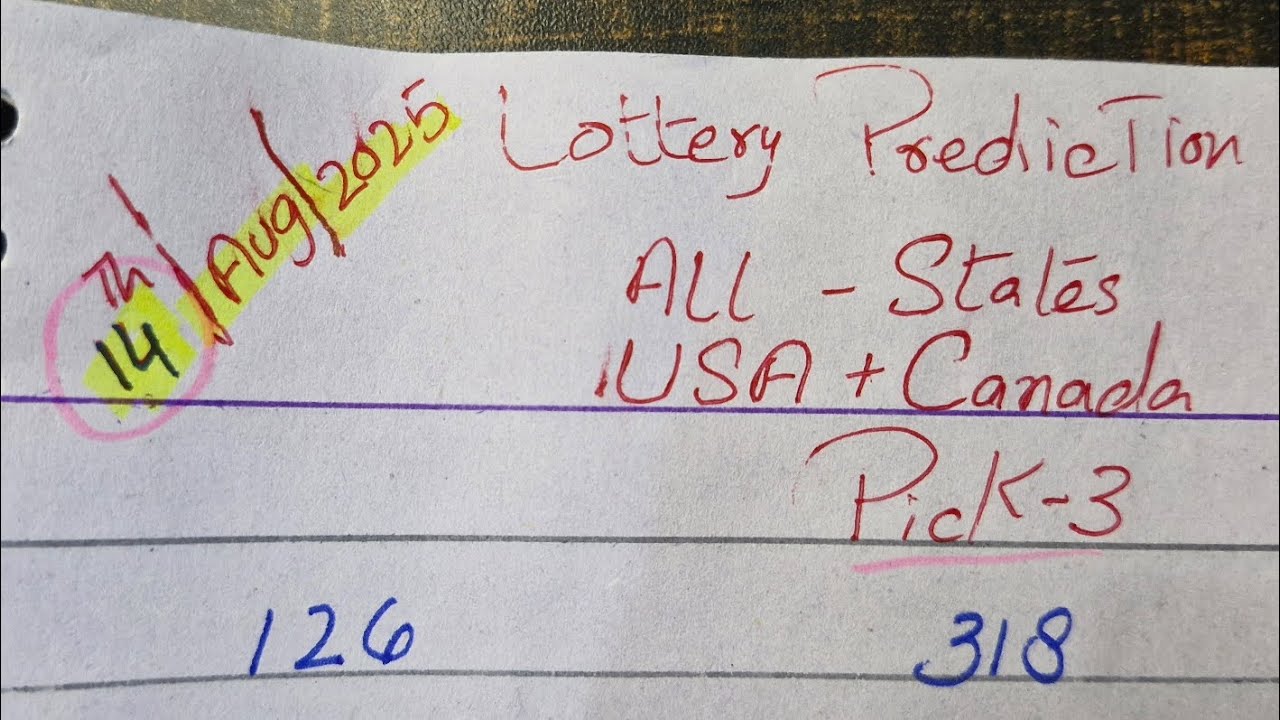 Th
14/Aug/2025
Lottery Prediction
All - States
USA + Canada
Pick-3
126 318